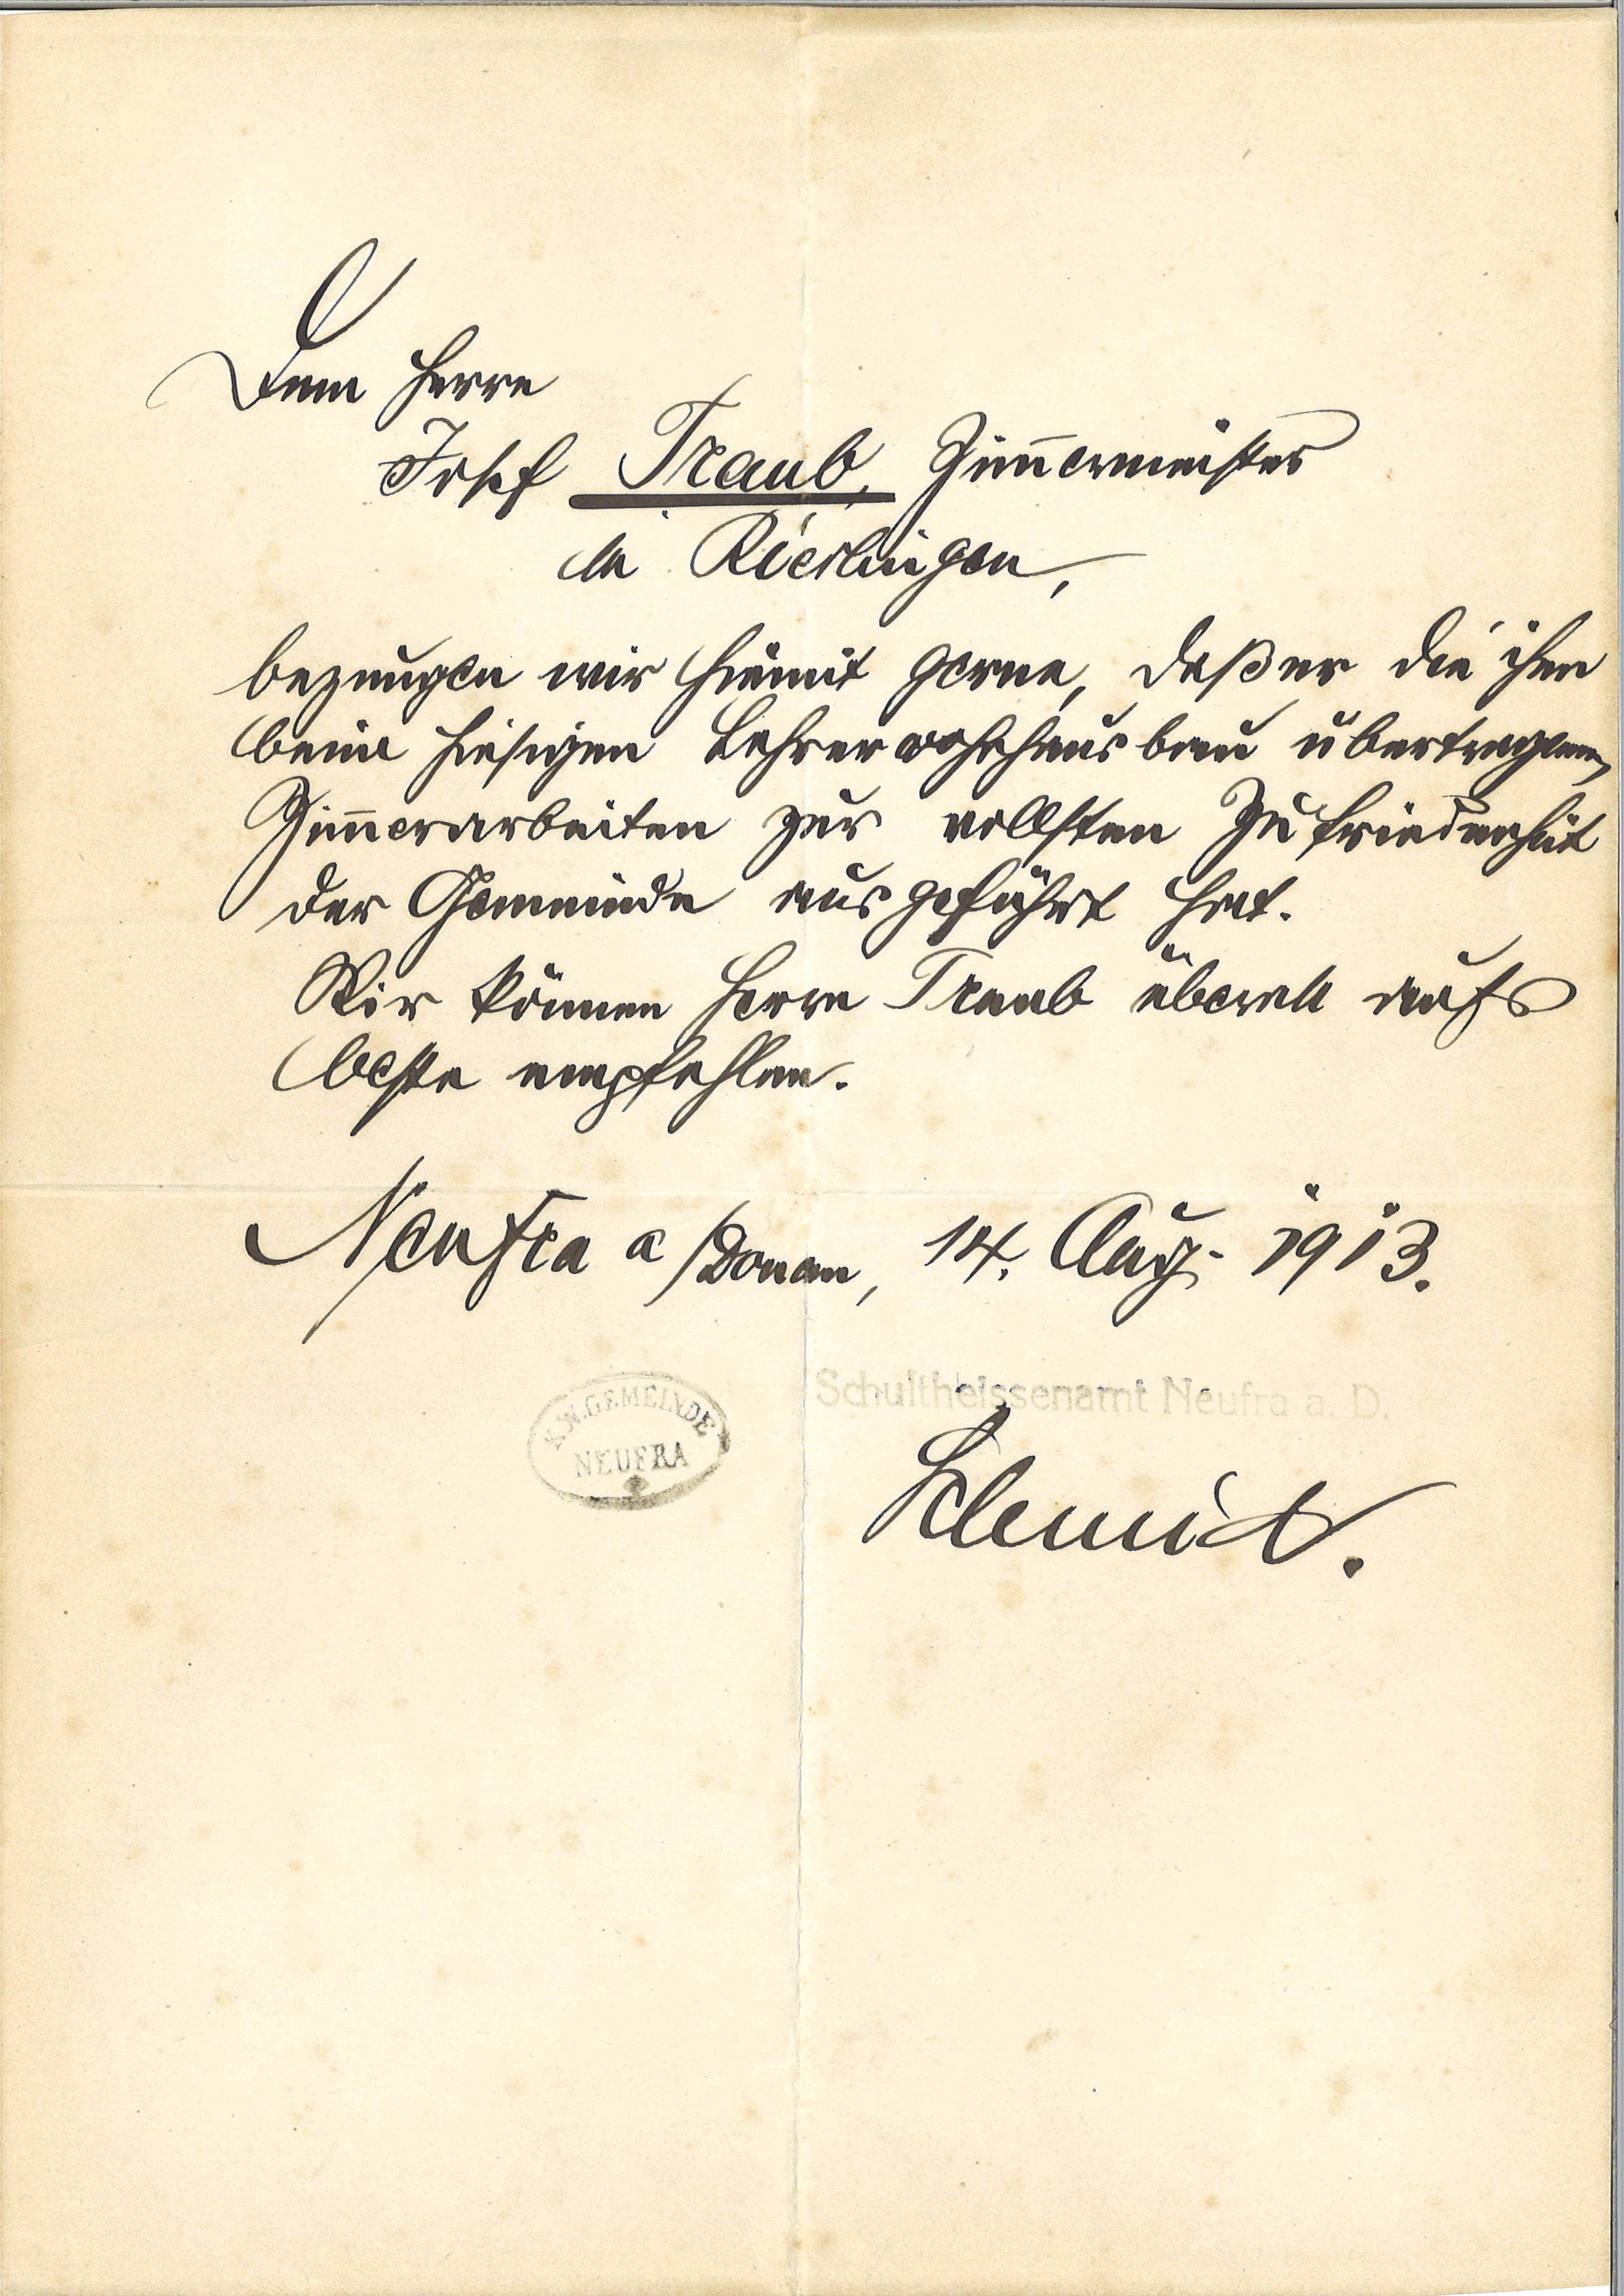 Dem Herrn
Josef Traub, Zim̄ermeister
in Riedlingen,
bezeugen wir hiemit gerne, daß er die ihm
beim hiesigen Lehrerwohnhausbau übertragenen
Zim̄erarbeiten zur vollsten Zufriedenheit
der Gemeinde ausgeführt hat.
Wir können Herrn Traub überall aufs
beste empfehlen.
Neufra a/Donau, 14. Aug. 1913.
Schultheissenamt Neufra a. D.
K.W.GEMEINDE
NEUFRA
Schmid.